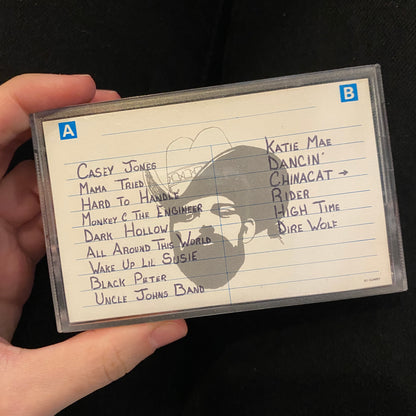 A
B
Casey Jones
Mama Tried
Hard to Handle
Monkey & The Engineer
Dark Hollow
All Around This World
Wake Up Lil Susie
Black Peter
Uncle Johns Band
Katie Mae
Dancin'
Chinacat →
Rider
High Time
Dire Wolf